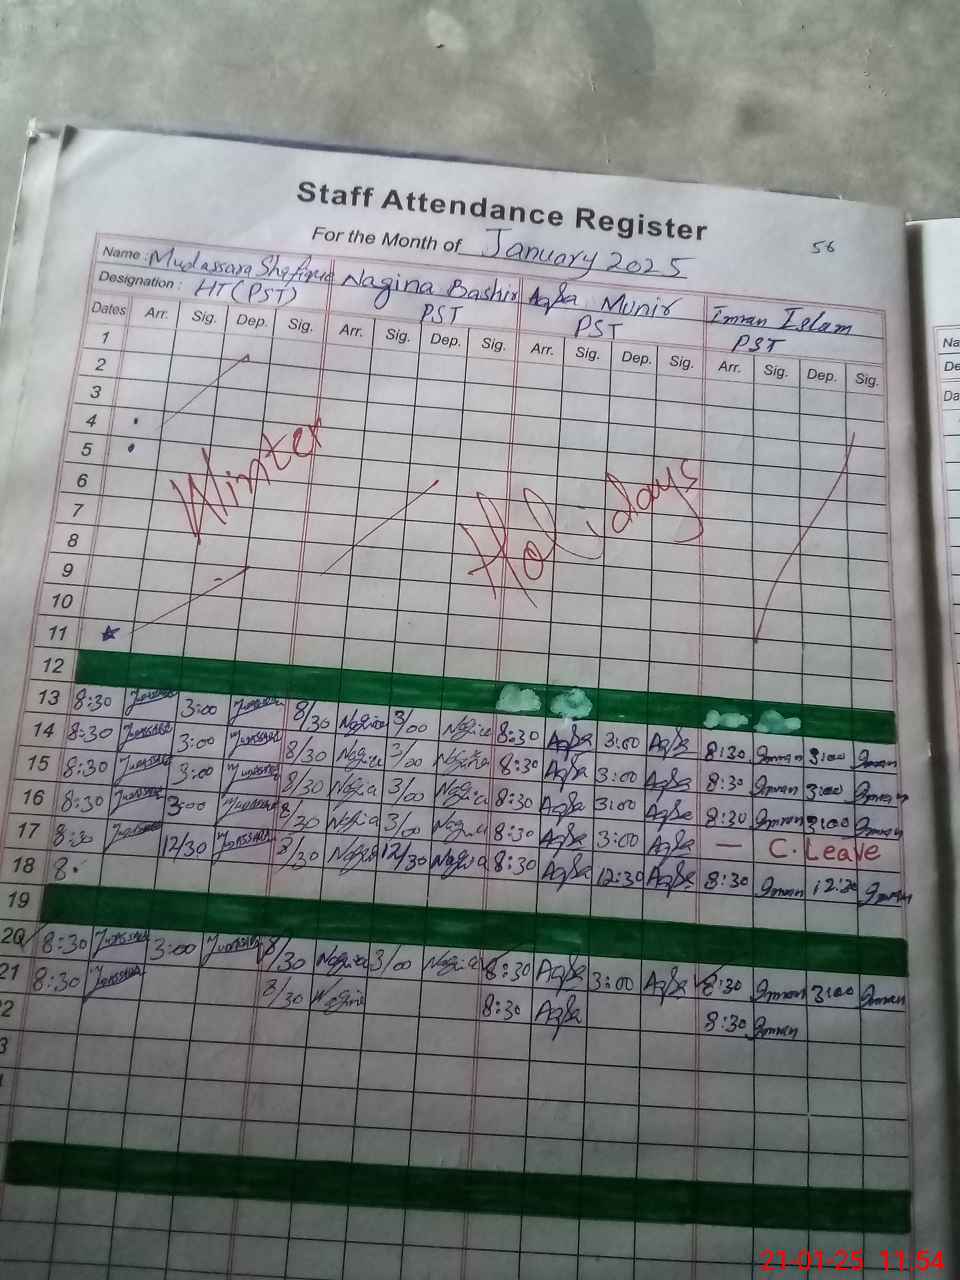 Staff Attendance Register
For the Month of January 2025
56
Name: Mudassara Shafique Nagina Bashir Aqsa Munir Imran Islam
Designation: HT (PST) PST PST PST
Dates Arr. Sig. Dep. Sig. Arr. Sig. Dep. Sig. Arr. Sig. Dep. Sig. Arr. Sig. Dep. Sig.
1
2
3
4
5
6
7
8
9
10
11
Winter Holidays
12
13 8:30 3:00 8/30 Nagina 3/00 Nagina 8:30 Aqsa 3:00 Aqsa 8:30 Imran 3:00 Imran
14 8:30 3:00 8/30 Nagina 3/00 Nagina 8:30 Aqsa 3:00 Aqsa 8:30 Imran 3:00 Imran
15 8:30 3:00 8/30 Nagina 3/00 Nagina 8:30 Aqsa 3:00 Aqsa 8:30 Imran 3:00 Imran
16 8:30 3:00 8/30 Nagina 3/00 Nagina 8:30 Aqsa 3:00 Aqsa — C. Leave
17 8:30 12/30 8/30 Nagina 12/30 Nagina 8:30 Aqsa 12:30 Aqsa 8:30 Imran 12:30 Imran
18 8.
19
20 8:30 3:00 8/30 Nagina 3/00 Nagina 8:30 Aqsa 3:00 Aqsa 8:30 Imran 3:00 Imran
21 8:30 8/30 Nagina 8:30 Aqsa 8:30 Imran
21-01-25 11:54